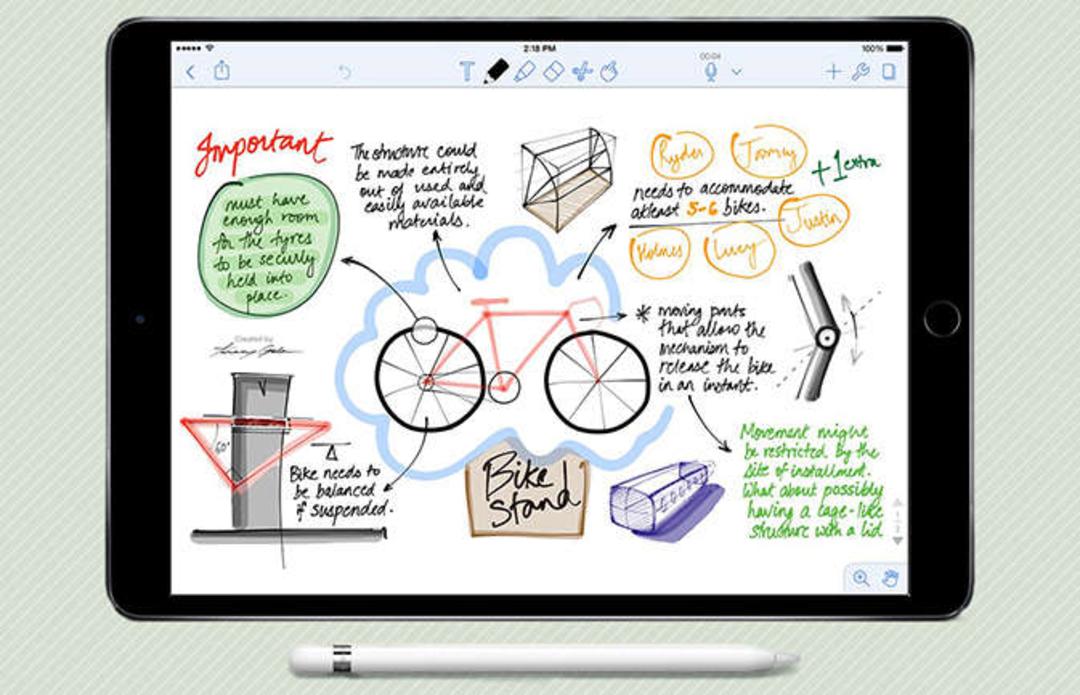 2:18 PM
100%
T
00:04
Important
must have
enough room
for the tyres
to be securly
held into
place.
The structure could
be made entirely
out of used and
easily available
materials.
Ryder
Tommy
+1 extra
needs to accommodate
atleast 5-6 bikes.
Justin
Holmes
Lucy
* moving parts
that allow the
mechanism to
release the bike
in an instant.
Created by
60°
Bike needs to
be balanced
if suspended.
Bike
Stand
Movement might
be restricted by the
site of installment.
What about possibly
having a cage-like
structure with a lid